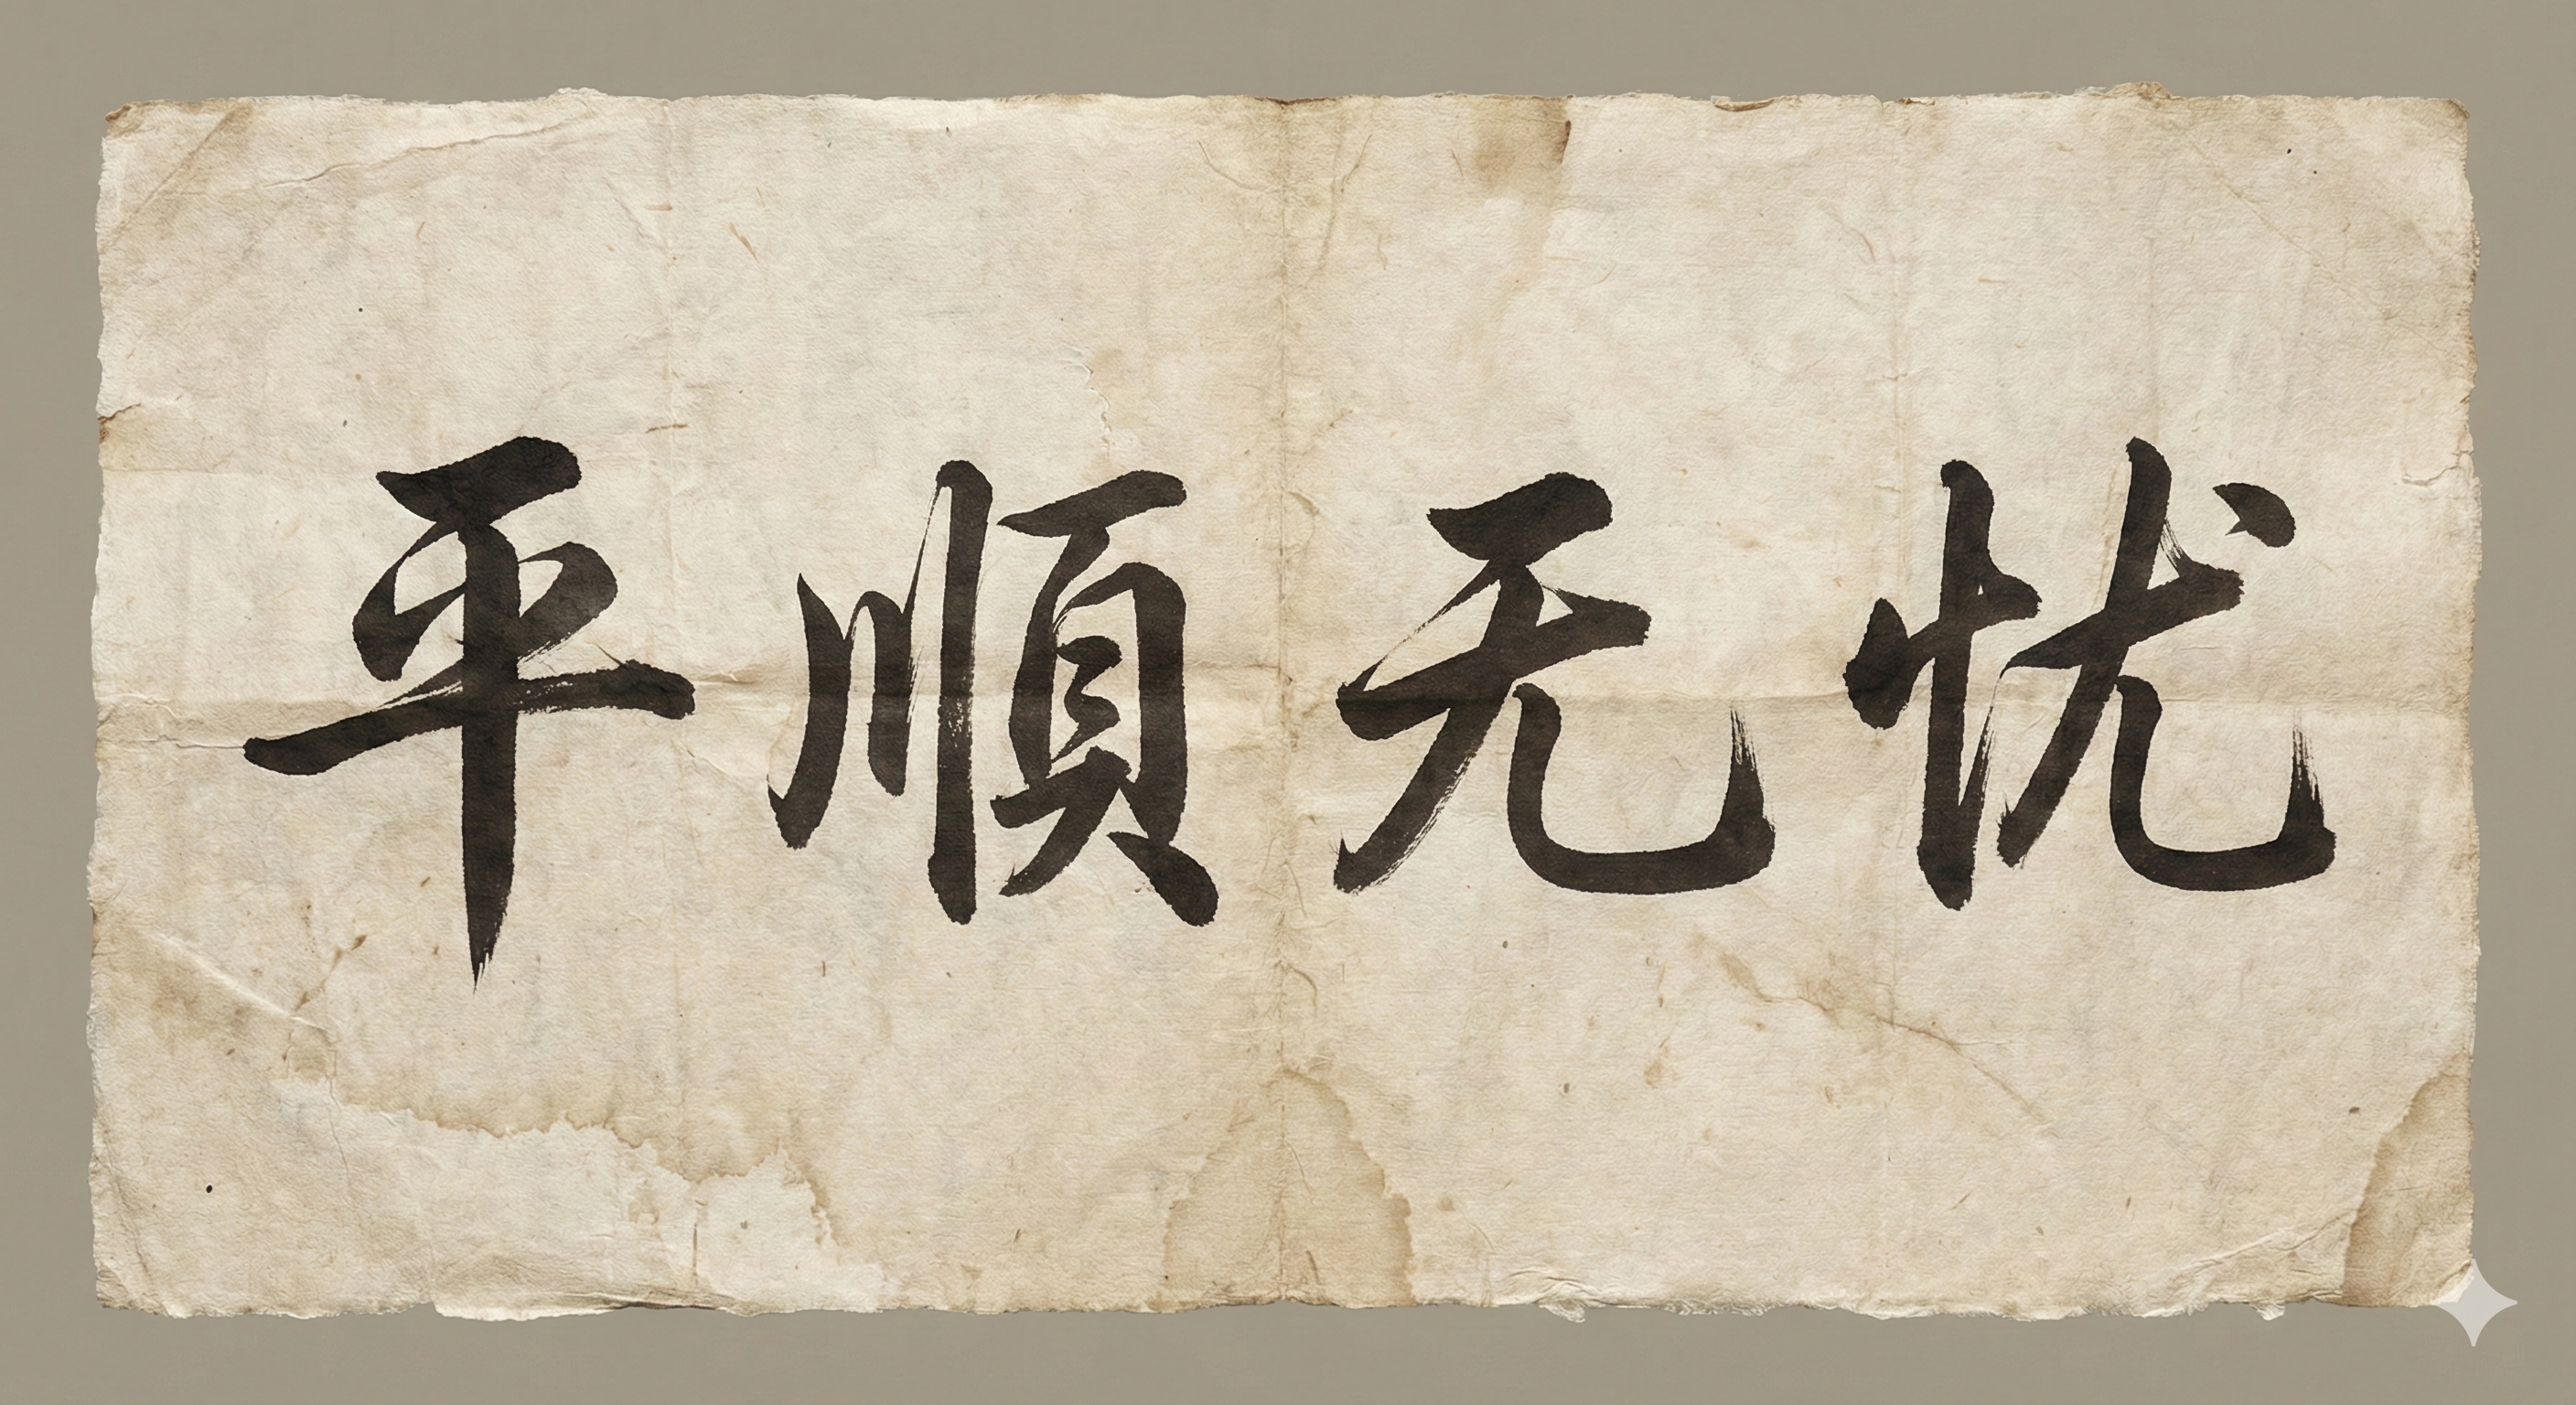 平順无忧